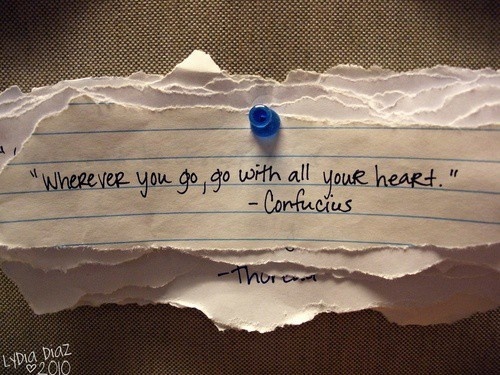 "Wherever you go, go with all your heart."
- Confucius
LYDIA DIAZ
♡2010